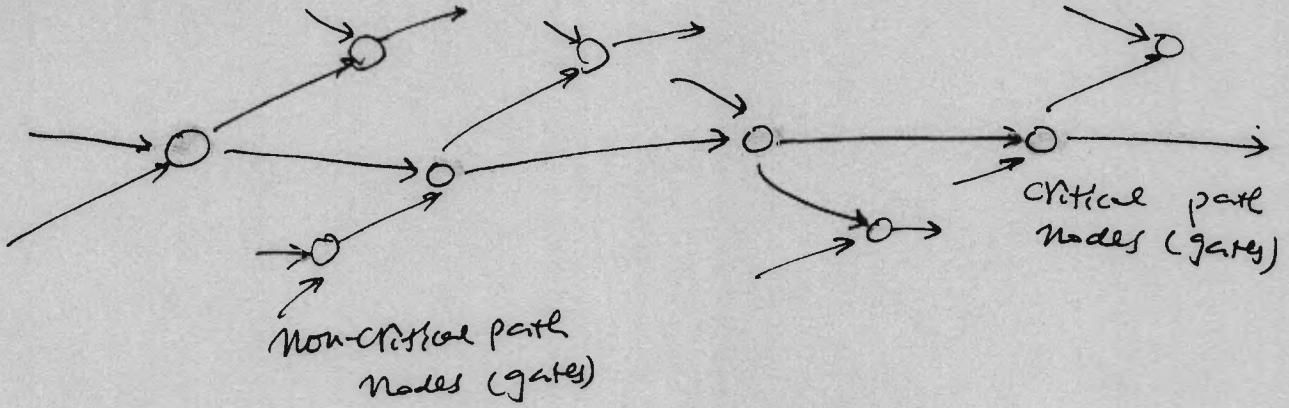 Critical path
nodes (gates)
Non-critical path
nodes (gates)